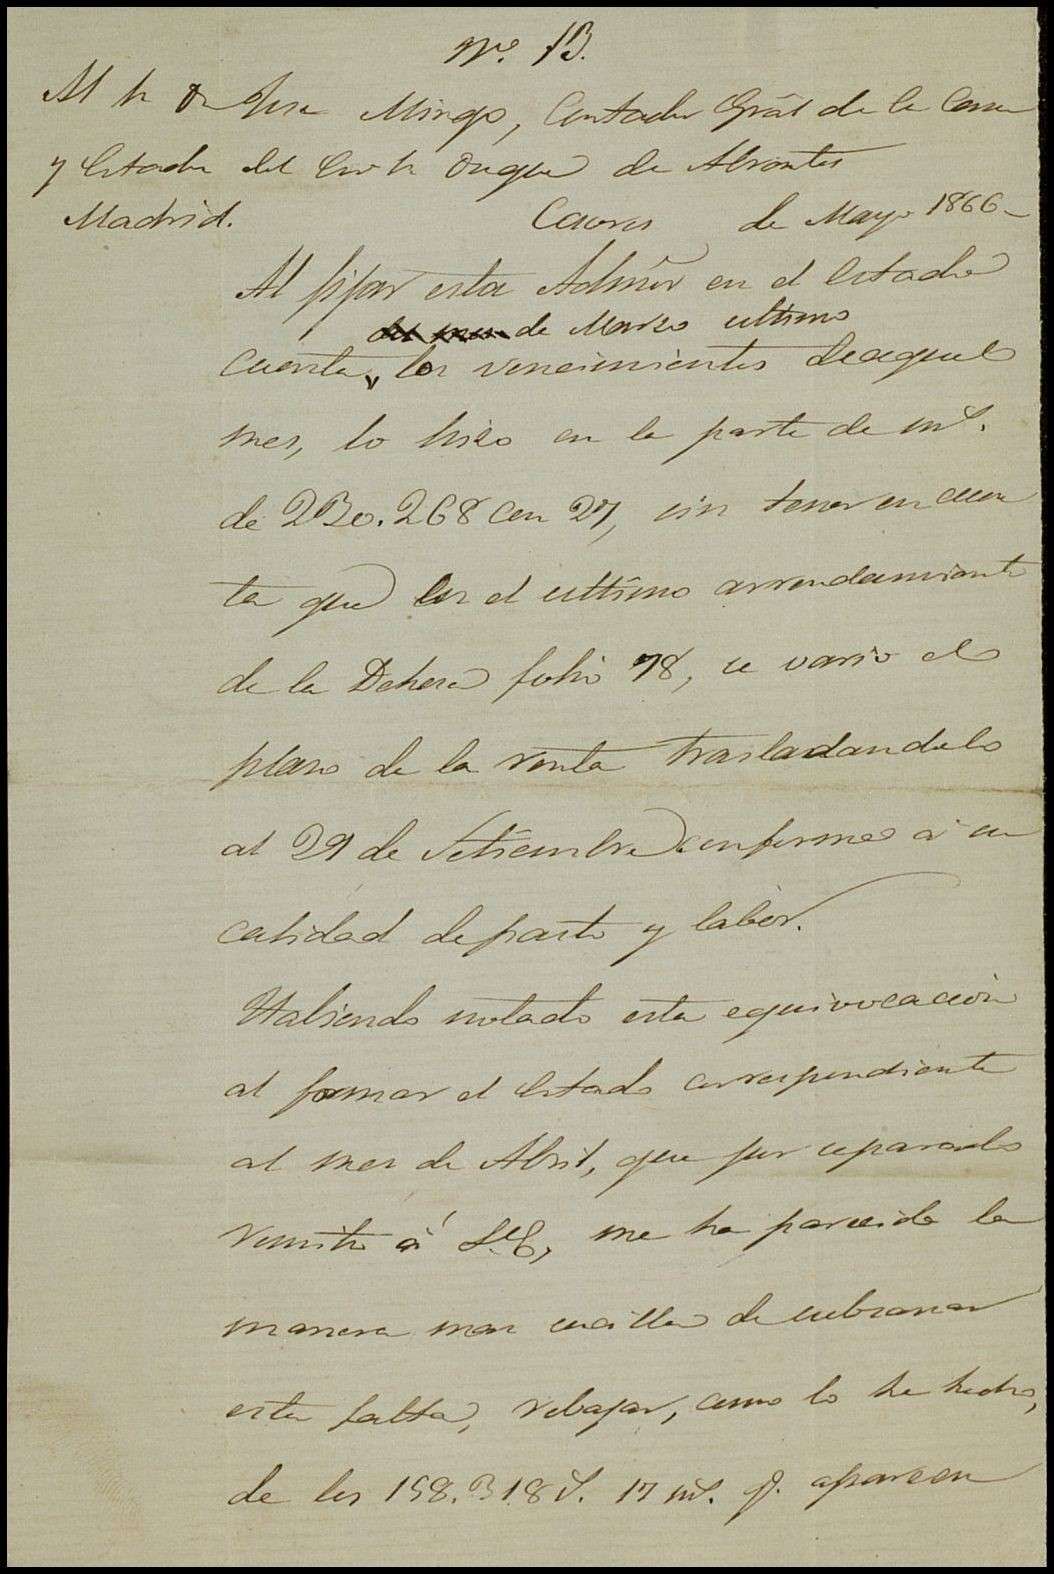 Nº. 13.
Al Sr Dn Jose Mingo, Contador Gräl de la Casa
y Estados del Exmo Sr Duque de Abrantes
Madrid.
Caceres de Mayo 1866-
Al fijar esta Admōn en el Estado
de Marzo ultimo
cuenta, los vencimientos de aquel
mes, lo hizo en la parte de mrs.
de 230.268 con 27, sin tener en cuen
ta que en el ultimo arrendamiento
de la Dehesa folio 78, se vario el
plazo de la renta trasladandolo
al 29 de Setiembre conforme á su
calidad de pasto y labor.
Habiendo notado esta equivocacion
al formar el Estado correspondiente
al mes de Abril, que por separado
remito á S.E., me ha parecido la
manera mas sencilla de subsanar
esta falta, rebajar, como lo he hecho,
de los 158.318 rs. 17 ms. q. aparecen